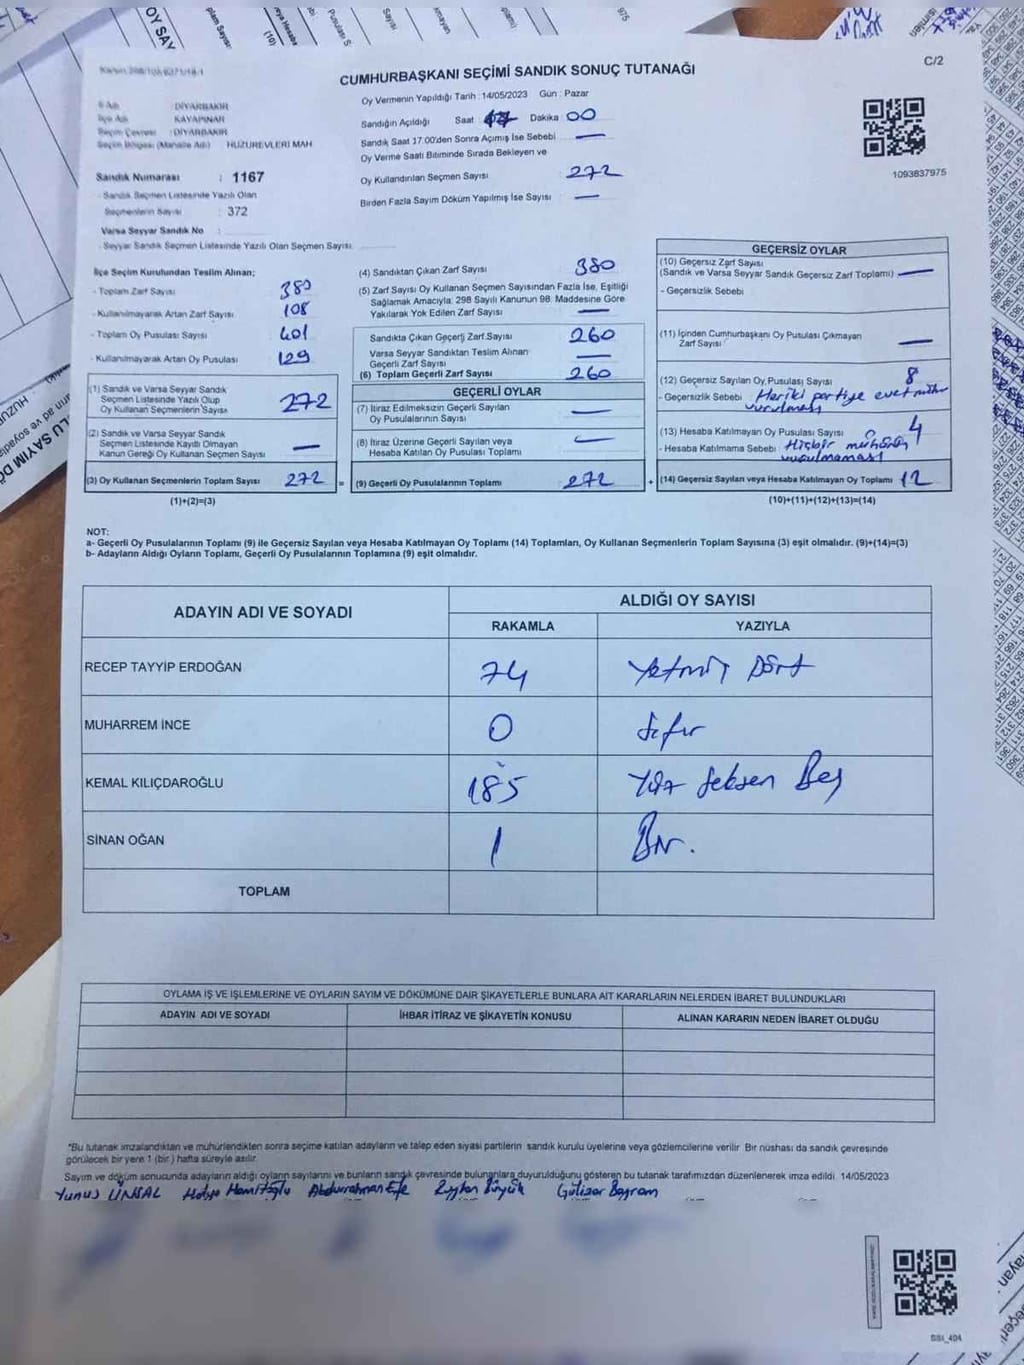 C/2
CUMHURBAŞKANI SEÇİMİ SANDIK SONUÇ TUTANAĞI
Oy Vermenin Yapıldığı Tarih : 14/05/2023 Gün : Pazar
İl Adı : DİYARBAKIR
İlçe Adı : KAYAPINAR
Seçim Çevresi : DİYARBAKIR
Seçim Bölgesi (Mahalle Adı) HUZUREVLERİ MAH
Sandık Numarası : 1167
Sandık Seçmen Listesinde Yazılı Olan
Seçmenlerin Sayısı : 372
Varsa Seyyar Sandık No :
- Seyyar Sandık Seçmen Listesinde Yazılı Olan Seçmen Sayısı:
Sandığın Açıldığı Saat Dakika 00
Sandık Saat 17.00'den Sonra Açımış İse Sebebi —
Oy Verme Saati Bitiminde Sırada Bekleyen ve
Oy Kullandırılan Seçmen Sayısı 272
Birden Fazla Sayım Döküm Yapılmış İse Sayısı —
1093837975
İlçe Seçim Kurulundan Teslim Alınan;
- Toplam Zarf Sayısı 380
- Kullanılmayarak Artan Zarf Sayısı 108
- Toplam Oy Pusulası Sayısı 401
- Kullanılmayarak Artan Oy Pusulası 129
(1) Sandık ve Varsa Seyyar Sandık
Seçmen Listesinde Yazılı Olup
Oy Kullanan Seçmenlerin Sayısı 272
(2) Sandık ve Varsa Seyyar Sandık
Seçmen Listesinde Kayıtlı Olmayan
Kanun Gereği Oy Kullanan Seçmen Sayısı —
(3) Oy Kullanan Seçmenlerin Toplam Sayısı 272 =
(1)+(2)=(3)
(4) Sandıktan Çıkan Zarf Sayısı 380
(5) Zarf Sayısı Oy Kullanan Seçmen Sayısından Fazla İse, Eşitliği
Sağlamak Amacıyla, 298 Sayılı Kanunun 98. Maddesine Göre
Yakılarak Yok Edilen Zarf Sayısı —
Sandıkta Çıkan Geçerli Zarf Sayısı 260
Varsa Seyyar Sandıktan Teslim Alınan
Geçerli Zarf Sayısı —
(6) Toplam Geçerli Zarf Sayısı 260
GEÇERLİ OYLAR
(7) İtiraz Edilmeksizin Geçerli Sayılan
Oy Pusulalarının Sayısı —
(8) İtiraz Üzerine Geçerli Sayılan veya
Hesaba Katılan Oy Pusulası Toplamı —
(9) Geçerli Oy Pusulalarının Toplamı 272 +
GEÇERSİZ OYLAR
(10) Geçersiz Zarf Sayısı
(Sandık ve Varsa Seyyar Sandık Geçersiz Zarf Toplamı) —
- Geçersizlik Sebebi
(11) İçinden Cumhurbaşkanı Oy Pusulası Çıkmayan
Zarf Sayısı —
(12) Geçersiz Sayılan Oy Pusulası Sayısı 8
- Geçersizlik Sebebi Heriki partiye evet mühür
vurulması
(13) Hesaba Katılmayan Oy Pusulası Sayısı 4
- Hesaba Katılmama Sebebi : Hiçbir mühürün
vurulmaması
(14) Geçersiz Sayılan veya Hesaba Katılmayan Oy Toplamı 12
(10)+(11)+(12)+(13)=(14)
NOT:
a- Geçerli Oy Pusulalarının Toplamı (9) ile Geçersiz Sayılan veya Hesaba Katılmayan Oy Toplamı (14) Toplamları, Oy Kullanan Seçmenlerin Toplam Sayısına (3) eşit olmalıdır. (9)+(14)=(3)
b- Adayların Aldığı Oyların Toplamı, Geçerli Oy Pusulalarının Toplamına (9) eşit olmalıdır.
ADAYIN ADI VE SOYADI ALDIĞI OY SAYISI
RAKAMLA YAZIYLA
RECEP TAYYİP ERDOĞAN 74 Yetmiş Dört
MUHARREM İNCE 0 Sıfır
KEMAL KILIÇDAROĞLU 185 Yüz Seksen Beş
SİNAN OĞAN 1 Bir.
TOPLAM
OYLAMA İŞ VE İŞLEMLERİNE VE OYLARIN SAYIM VE DÖKÜMÜNE DAİR ŞİKAYETLERLE BUNLARA AİT KARARLARIN NELERDEN İBARET BULUNDUKLARI
ADAYIN ADI VE SOYADI İHBAR İTİRAZ VE ŞİKAYETİN KONUSU ALINAN KARARIN NEDEN İBARET OLDUĞU
*Bu tutanak imzalandıktan ve mühürlendikten sonra seçime katılan adayların ve talep eden siyasi partilerin sandık kurulu üyelerine veya gözlemcilerine verilir. Bir nüshası da sandık çevresinde
görülecek bir yere 1 (bir) hafta süreyle asılır.
Sayım ve döküm sonucunda adayların aldığı oyların sayılarını ve bunların sandık çevresinde bulunanlara duyurulduğunu gösteren bu tutanak tarafımızdan düzenlenerek imza edildi. 14/05/2023
Yunus ÜNSAL Hatice Hamitoğlu Abdurrahman Efe Reyhan Büyük Gülizar Bayram